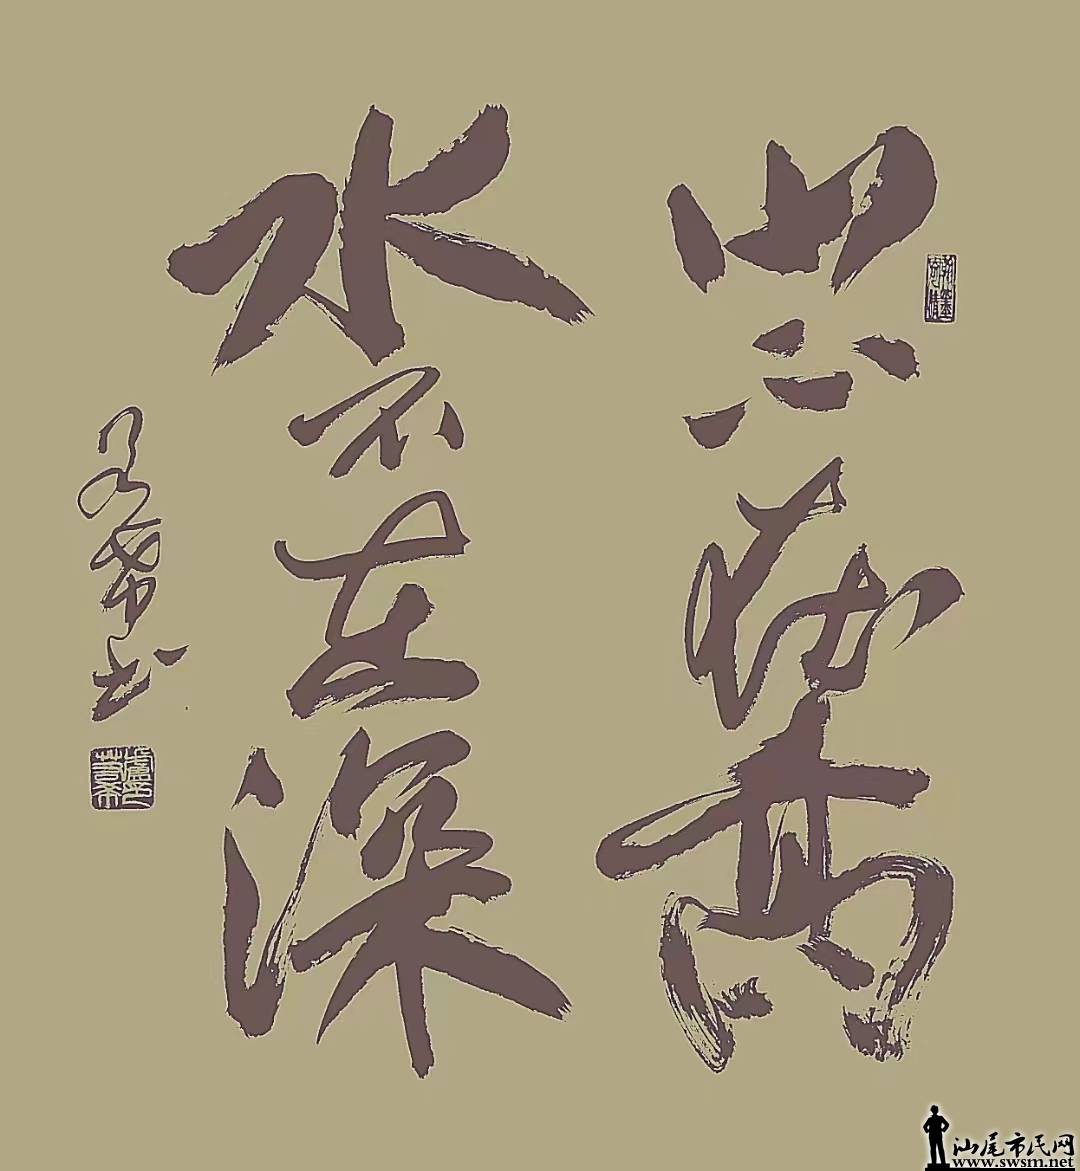 山不在高
水不在深
若希书
汕尾市民网
www.swsm.net